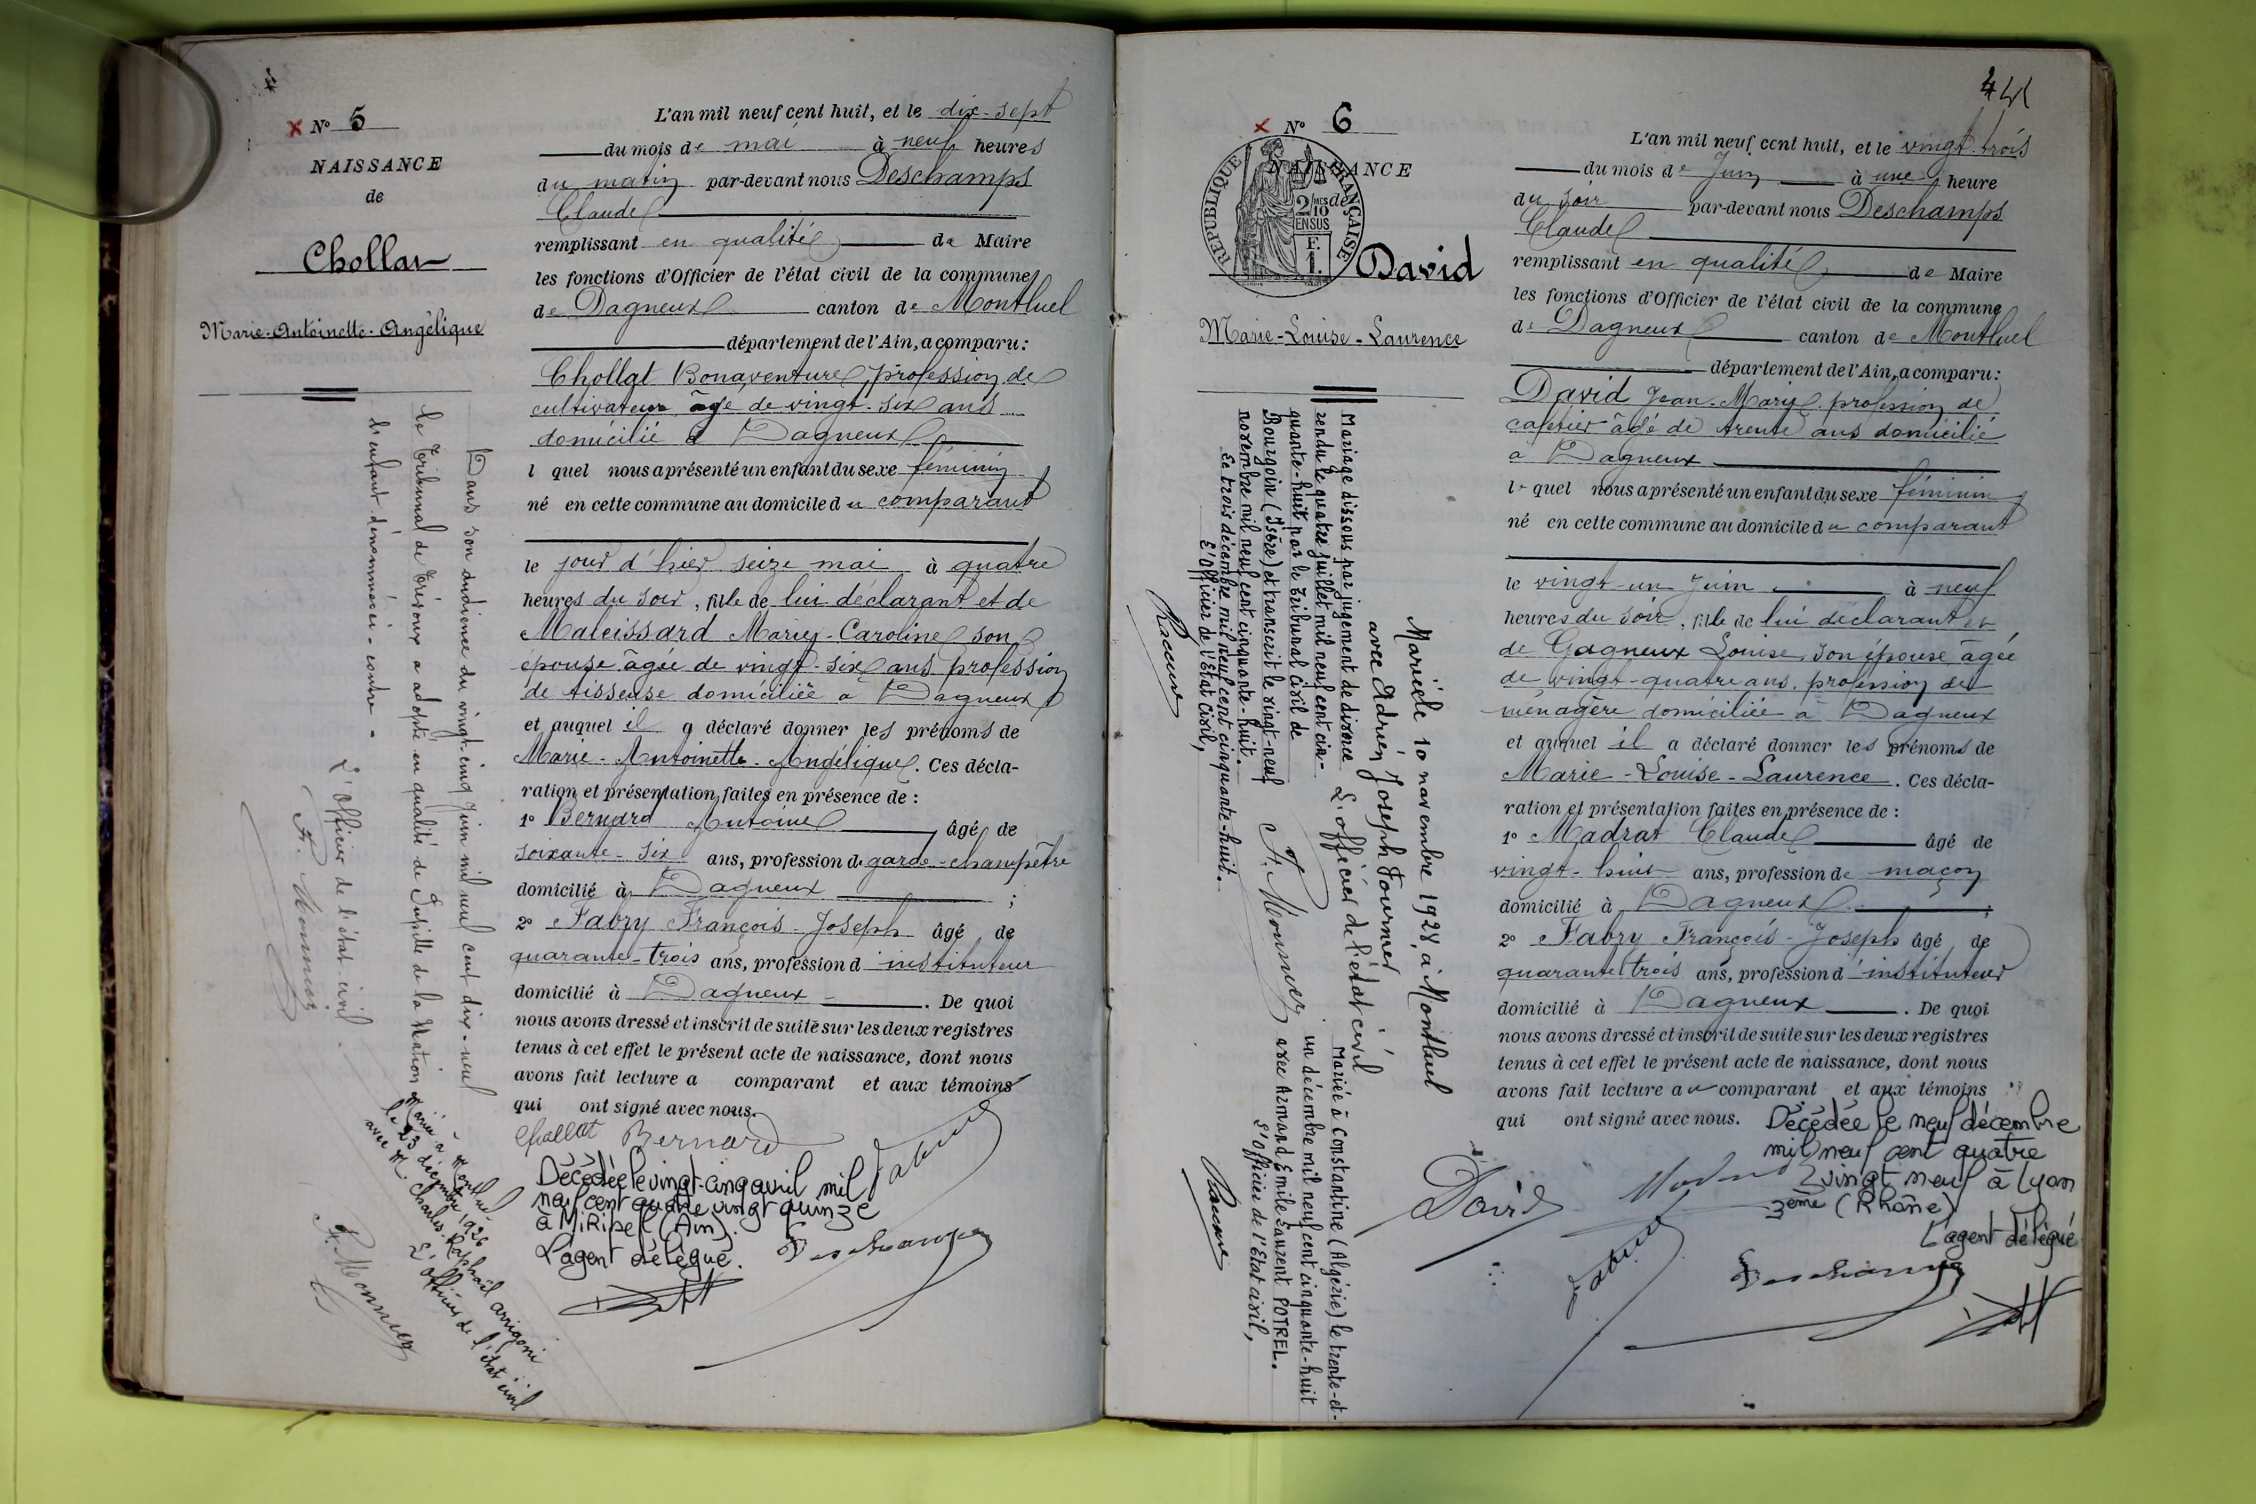 N° 5
NAISSANCE
de
Chollat
Marie-Antoinette-Angélique
Dans son audience du vingt-cinq Juin mil neuf cent dix-neuf
le Tribunal de Trévoux a adopté en qualité de Pupille de la Nation
l'enfant dénommé ci-contre.
L'officier de l'état civil.
F. Monnier
Mariée à Montluel
le 23 décembre 1926
avec M. Charles Raphaël Arrigoni
L'officier de l'état civil
F. Monnier
L'an mil neuf cent huit, et le dix-sept
du mois de mai à neuf heures
du matin par-devant nous Deschamps
Claude
remplissant en qualité de Maire
les fonctions d'Officier de l'état civil de la commune
de Dagneux canton de Montluel
département de l'Ain, a comparu:
Chollat Bonaventure, profession de
cultivateur âgé de vingt-six ans
domicilié à Dagneux
l quel nous a présenté un enfant du sexe féminin
né en cette commune au domicile du comparant
le jour d'hier seize mai à quatre
heures du soir, fille de lui déclarant et de
Maleissard Marie-Caroline son
épouse âgée de vingt-six ans profession
de tisseuse domiciliée à Dagneux
et auquel il a déclaré donner les prénoms de
Marie-Antoinette-Angélique. Ces décla-
ration et présentation faites en présence de :
1° Bernard Antoine âgé de
soixante-six ans, profession de garde-champêtre
domicilié à Dagneux ;
2° Fabry François-Joseph âgé de
quarante-trois ans, profession d instituteur
domicilié à Dagneux. De quoi
nous avons dressé et inscrit de suite sur les deux registres
tenus à cet effet le présent acte de naissance, dont nous
avons fait lecture a comparant et aux témoins
qui ont signé avec nous.
Chollat Bernard
Fabry
Décédée le vingt-cinq avril mil
neuf cent quatre vingt quinze
à Miribel (Ain).
L'agent délégué.
Deschamps
441
N° 6
NAISSANCE
de
RÉPUBLIQUE FRANÇAISE
2/10
EN SUS
F.
1.
David
Marie-Louise-Laurence
Mariée le 10 novembre 1928 à Montluel
avec Adrien Joseph Fournier
L'officier de l'état civil
F. Monnier
Mariage dissous par jugement de divorce
rendu le quatre juillet mil neuf cent cin-
quante-huit par le Tribunal Civil de
Bourgoin (Isère) et transcrit le vingt-neuf
novembre mil neuf cent cinquante-huit.
Le trois décembre mil neuf cent cinquante-huit.
L'Officier de l'Etat Civil,
Mariée à Constantine (Algérie) le trente-et-
un décembre mil neuf cent cinquante-huit
avec Armand Emile Laurent POTREL.
L'Officier de l'Etat civil,
L'an mil neuf cent huit, et le vingt-trois
du mois de Juin à une heure
du soir par-devant nous Deschamps
Claude
remplissant en qualité de Maire
les fonctions d'Officier de l'état civil de la commune
de Dagneux canton de Montluel
département de l'Ain, a comparu:
David Jean-Marie profession de
cafetier âgé de trente ans domicilié
à Dagneux
lequel nous a présenté un enfant du sexe féminin
né en cette commune au domicile du comparant
le vingt-un Juin à neuf
heures du soir, fille de lui déclarant et
de Gagneux Louise, son épouse, âgée
de vingt-quatre ans, profession de
ménagère domiciliée à Dagneux
et auquel il a déclaré donner les prénoms de
Marie-Louise-Laurence. Ces décla-
ration et présentation faites en présence de :
1° Madrat Claude âgé de
vingt-huit ans, profession de maçon
domicilié à Dagneux ;
2° Fabry François-Joseph âgé de
quarante-trois ans, profession d'instituteur
domicilié à Dagneux. De quoi
nous avons dressé et inscrit de suite sur les deux registres
tenus à cet effet le présent acte de naissance, dont nous
avons fait lecture au comparant et aux témoins
qui ont signé avec nous.
Décédée le neuf décembre
mil neuf cent quatre
vingt neuf à Lyon
3ème (Rhône)
L'agent délégué
David
Fabry
Deschamps